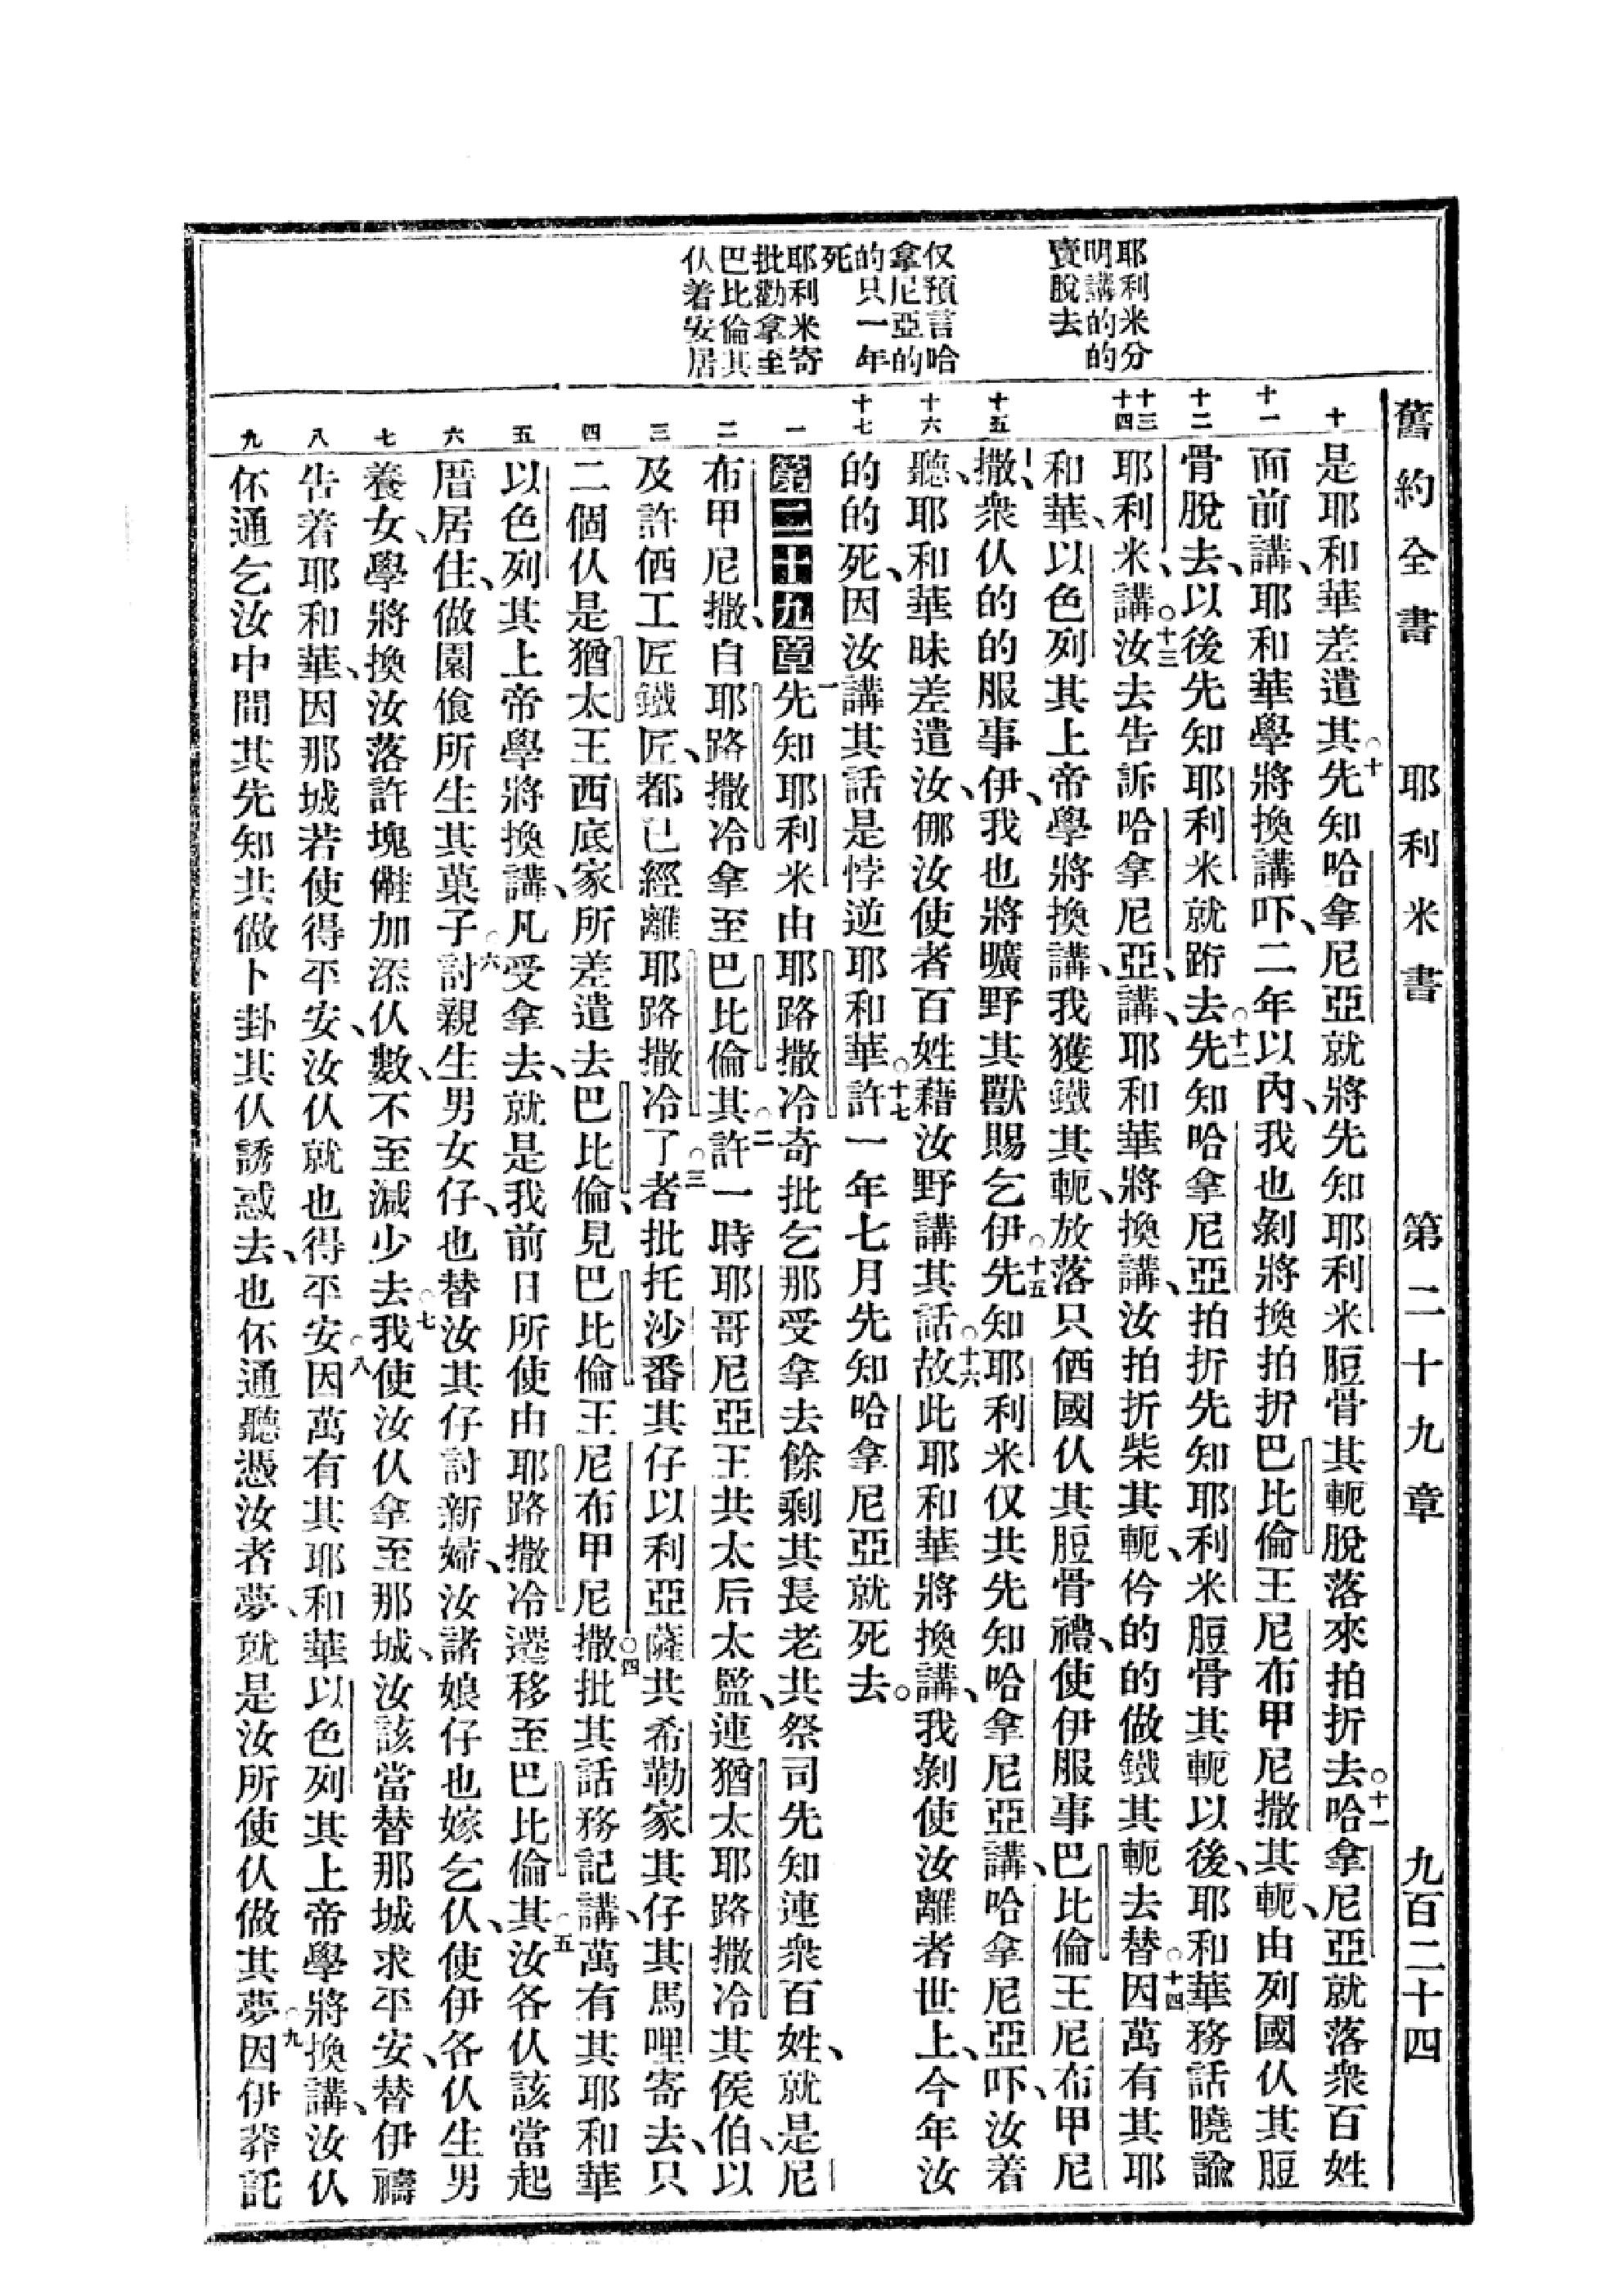 舊約全書 耶利米書 第二十九章 九百二十四
耶利米分
明講的的
賣脫去
仅預言哈
拿尼亞的
的只一年
死
耶利米寄
批勸拿至
巴比倫其
仈着安居
十
十一
十二
十三
十四
十五
十六
十七
一
二
三
四
五
六
七
八
九
是耶和華差遣其○十先知哈拿尼亞就將先知耶利米脰骨其軛脫落來拍折去○十一哈拿尼亞就落衆百姓
面前講、耶和華學將換講吓、二年以內、我也剝將換拍折巴比倫王尼布甲尼撒其軛、由列國仈其脰
骨脫去、以後先知耶利米就跡去○十二先知哈拿尼亞拍折先知耶利米脰骨其軛以後、耶和華務話曉諭
耶利米講○十三汝去告訴哈拿尼亞、講、耶和華將換講、汝拍折柴其軛、伶的的做鐵其軛去替○十四因萬有其耶
和華、以色列其上帝學將換講、我獲鐵其軛、放落只倘國仈其脰骨禮、使伊服事巴比倫王尼布甲尼
撒、衆仈的的服事伊、我也將曠野其獸賜乞伊○十五先知耶利米仅共先知哈拿尼亞講、哈拿尼亞吓、汝着
聽、耶和華昧差遣汝、倻汝使者百姓藉汝野講其話○十六故此耶和華將換講、我剝使汝離者世上、今年汝
的的死、因汝講其話是悖逆耶和華○十七許一年七月先知哈拿尼亞就死去。
第二十九章一先知耶利米由耶路撒冷寄批乞那受拿去餘剩其長老共祭司先知連衆百姓、就是尼
布甲尼撒、自耶路撒冷拿至巴比倫其○二許一時耶哥尼亞王共太后太監、連猶太耶路撒冷其侯伯、以
及許倘工匠鐵匠、都已經離耶路撒冷了○三者批托沙番其仔以利亞薩共希勒家其仔其馬哩寄去、只
二個仈是猶太王西底家所差遣去巴比倫、見巴比倫王尼布甲尼撒○四批其話務記講、萬有其耶和華
以色列其上帝學將換講、凡受拿去、就是我前日所使由耶路撒冷遷移至巴比倫其○五汝各仈該當起
厝居住、做園飡所生其菓子○六討親生男女仔、也替汝其仔討新婦、汝諸娘仔也嫁乞仈、使伊各仈生男
養女、學將換汝落許塊儺加添仈數、不至減少去○七我使汝仈拿至那城、汝該當替那城求平安、替伊禱
告着耶和華、因那城若使得平安、汝仈就也得平安○八因萬有其耶和華以色列其上帝學將換講、汝仈
伓通乞汝中間其先知共做卜卦其仈誘惑去、也伓通聽憑汝者夢、就是汝所使仈做其夢○九因伊莽託